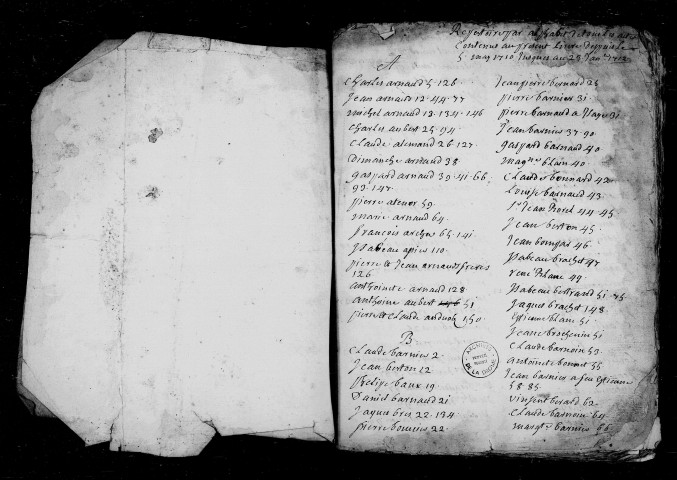 Repertoire par alphabet de tous les actes
Contenus au present Livre depuis le
5 may 1710 Jusques au 28 Janr. 1712
A
Charles arnaud 5. 126
Jean arnaud 12. 44. 77
michel arnaud 12. 134. 146
Charles aubert 25. 94.
Claude alemand 26. 127.
Dimanche arnaud 38
gaspard arnaud 39. 41. 66.
93. 147.
pierre atenor 59
marie arnaud 64.
francois arches 65. 141
Isabeau apies 110.
pierre & Jean arnauds freres
126
anthoinete arnaud 128
anthoine aubert 51
pierre & Claude 150
B
Claude barnier 2
Jean berton 12
Felipe baux 19
Daniel barnaud 21
Jaques bres 22. 134
pierre bonnies 22
Jean pierre bernard 28
pierre barnier 31.
pierre barnaud 31
Jean barnier 37. 90
gaspard barnaud 40
magne. blain 40.
Claude bonnard 42
Louise barnaud 43
sr. Jean borel 44. 45
Jean berton 45
Jean bonfar 46
Isabeau brachet 47
49
Isabeau bertrand 51. 75
Jaques brachet 148
Estienne blanc 51
Jeane 51
Claude barnoin 53
antoine bonnet 55
Jean barnier a feu estienne
58. 85.
vinsent berard 62
Claude barnoin 64
margte. barnier 66
ARCHIVES
DE LA DROME